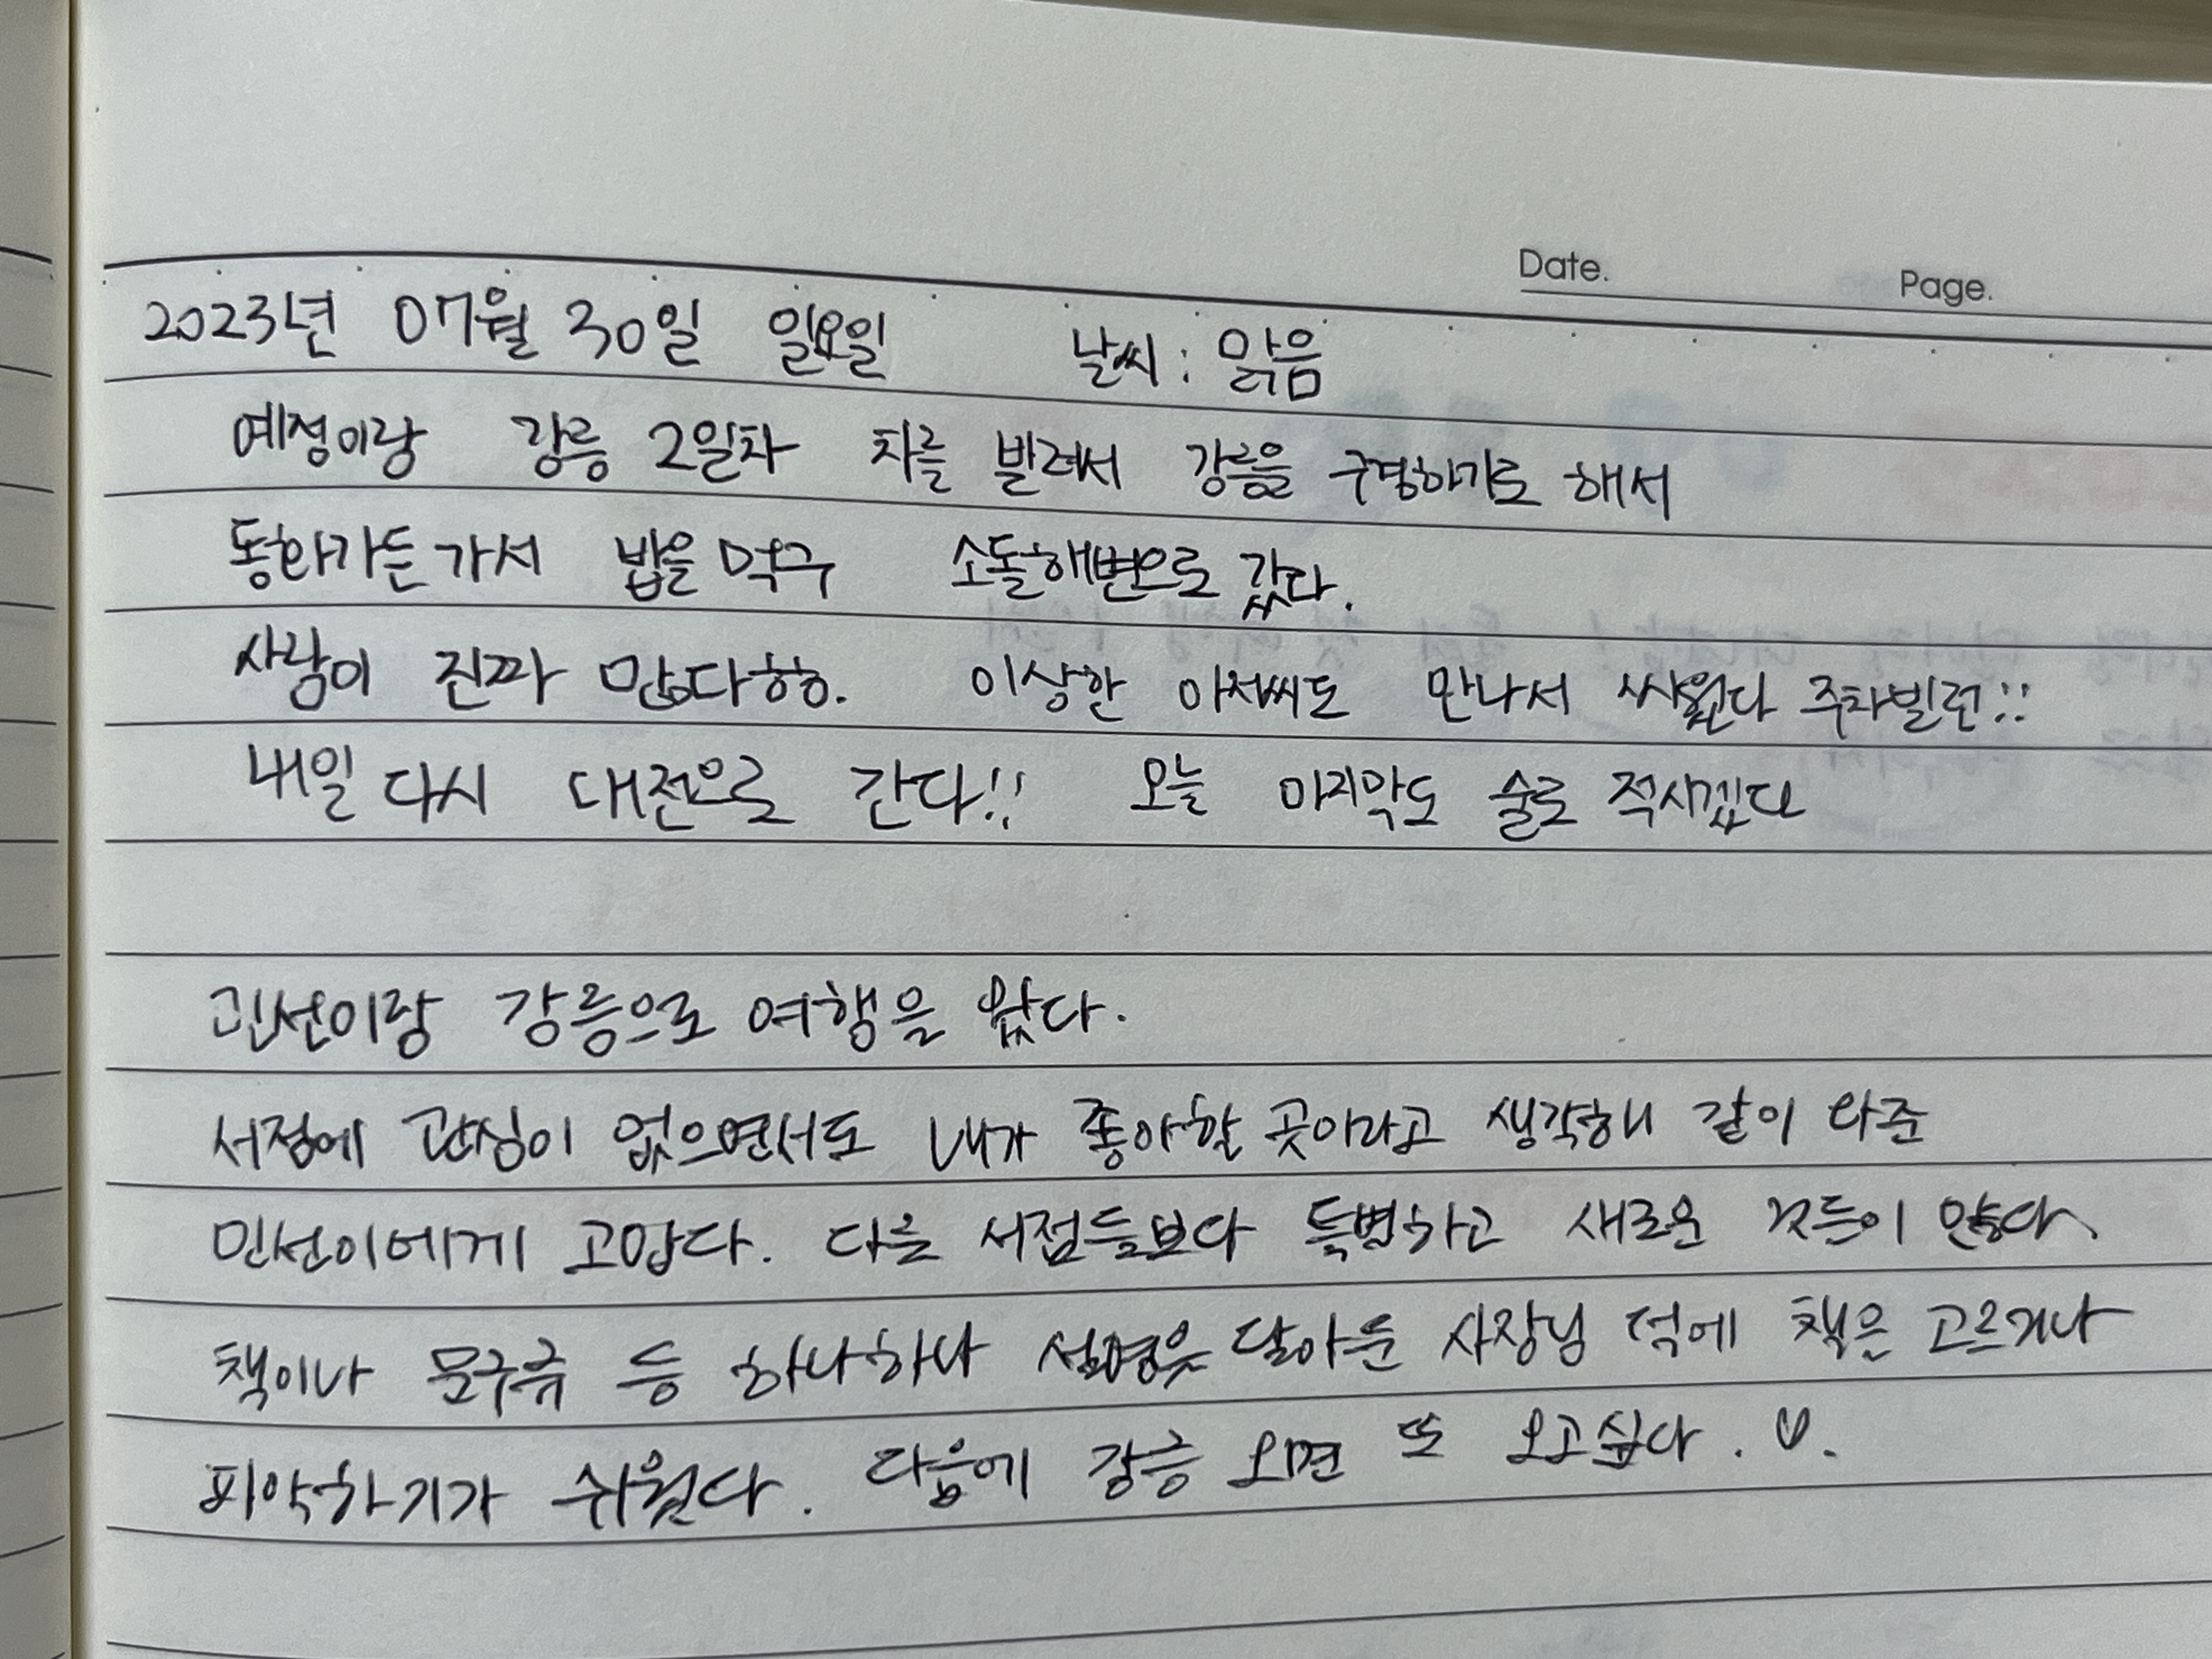 Date. Page.
2023년 07월 30일 일요일 날씨 : 맑음
예정이랑 강릉 2일차 차를 빌려서 강릉을 구경하기로 해서
동화가든가서 밥을 먹구 소돌해변으로 갔다.
사람이 진짜 많다항. 이상한 아저씨도 만나서 싸웠다 주차빌런!!
내일 다시 대전으로 간다!! 오늘 마지막도 술로 적시겠다
민선이랑 강릉으로 여행을 왔다.
서점에 관심이 없으면서도 내가 좋아할 곳이라고 생각해 같이 와준
민선이에게 고맙다. 다른 서점들보다 특별하고 새로운 것들이 많다.
책이나 문구류 등 하나하나 설명을 달아둔 사장님 덕에 책을 고르거나
파악하기가 쉬웠다. 다음에 강릉 오면 또 오고싶다. ♡.